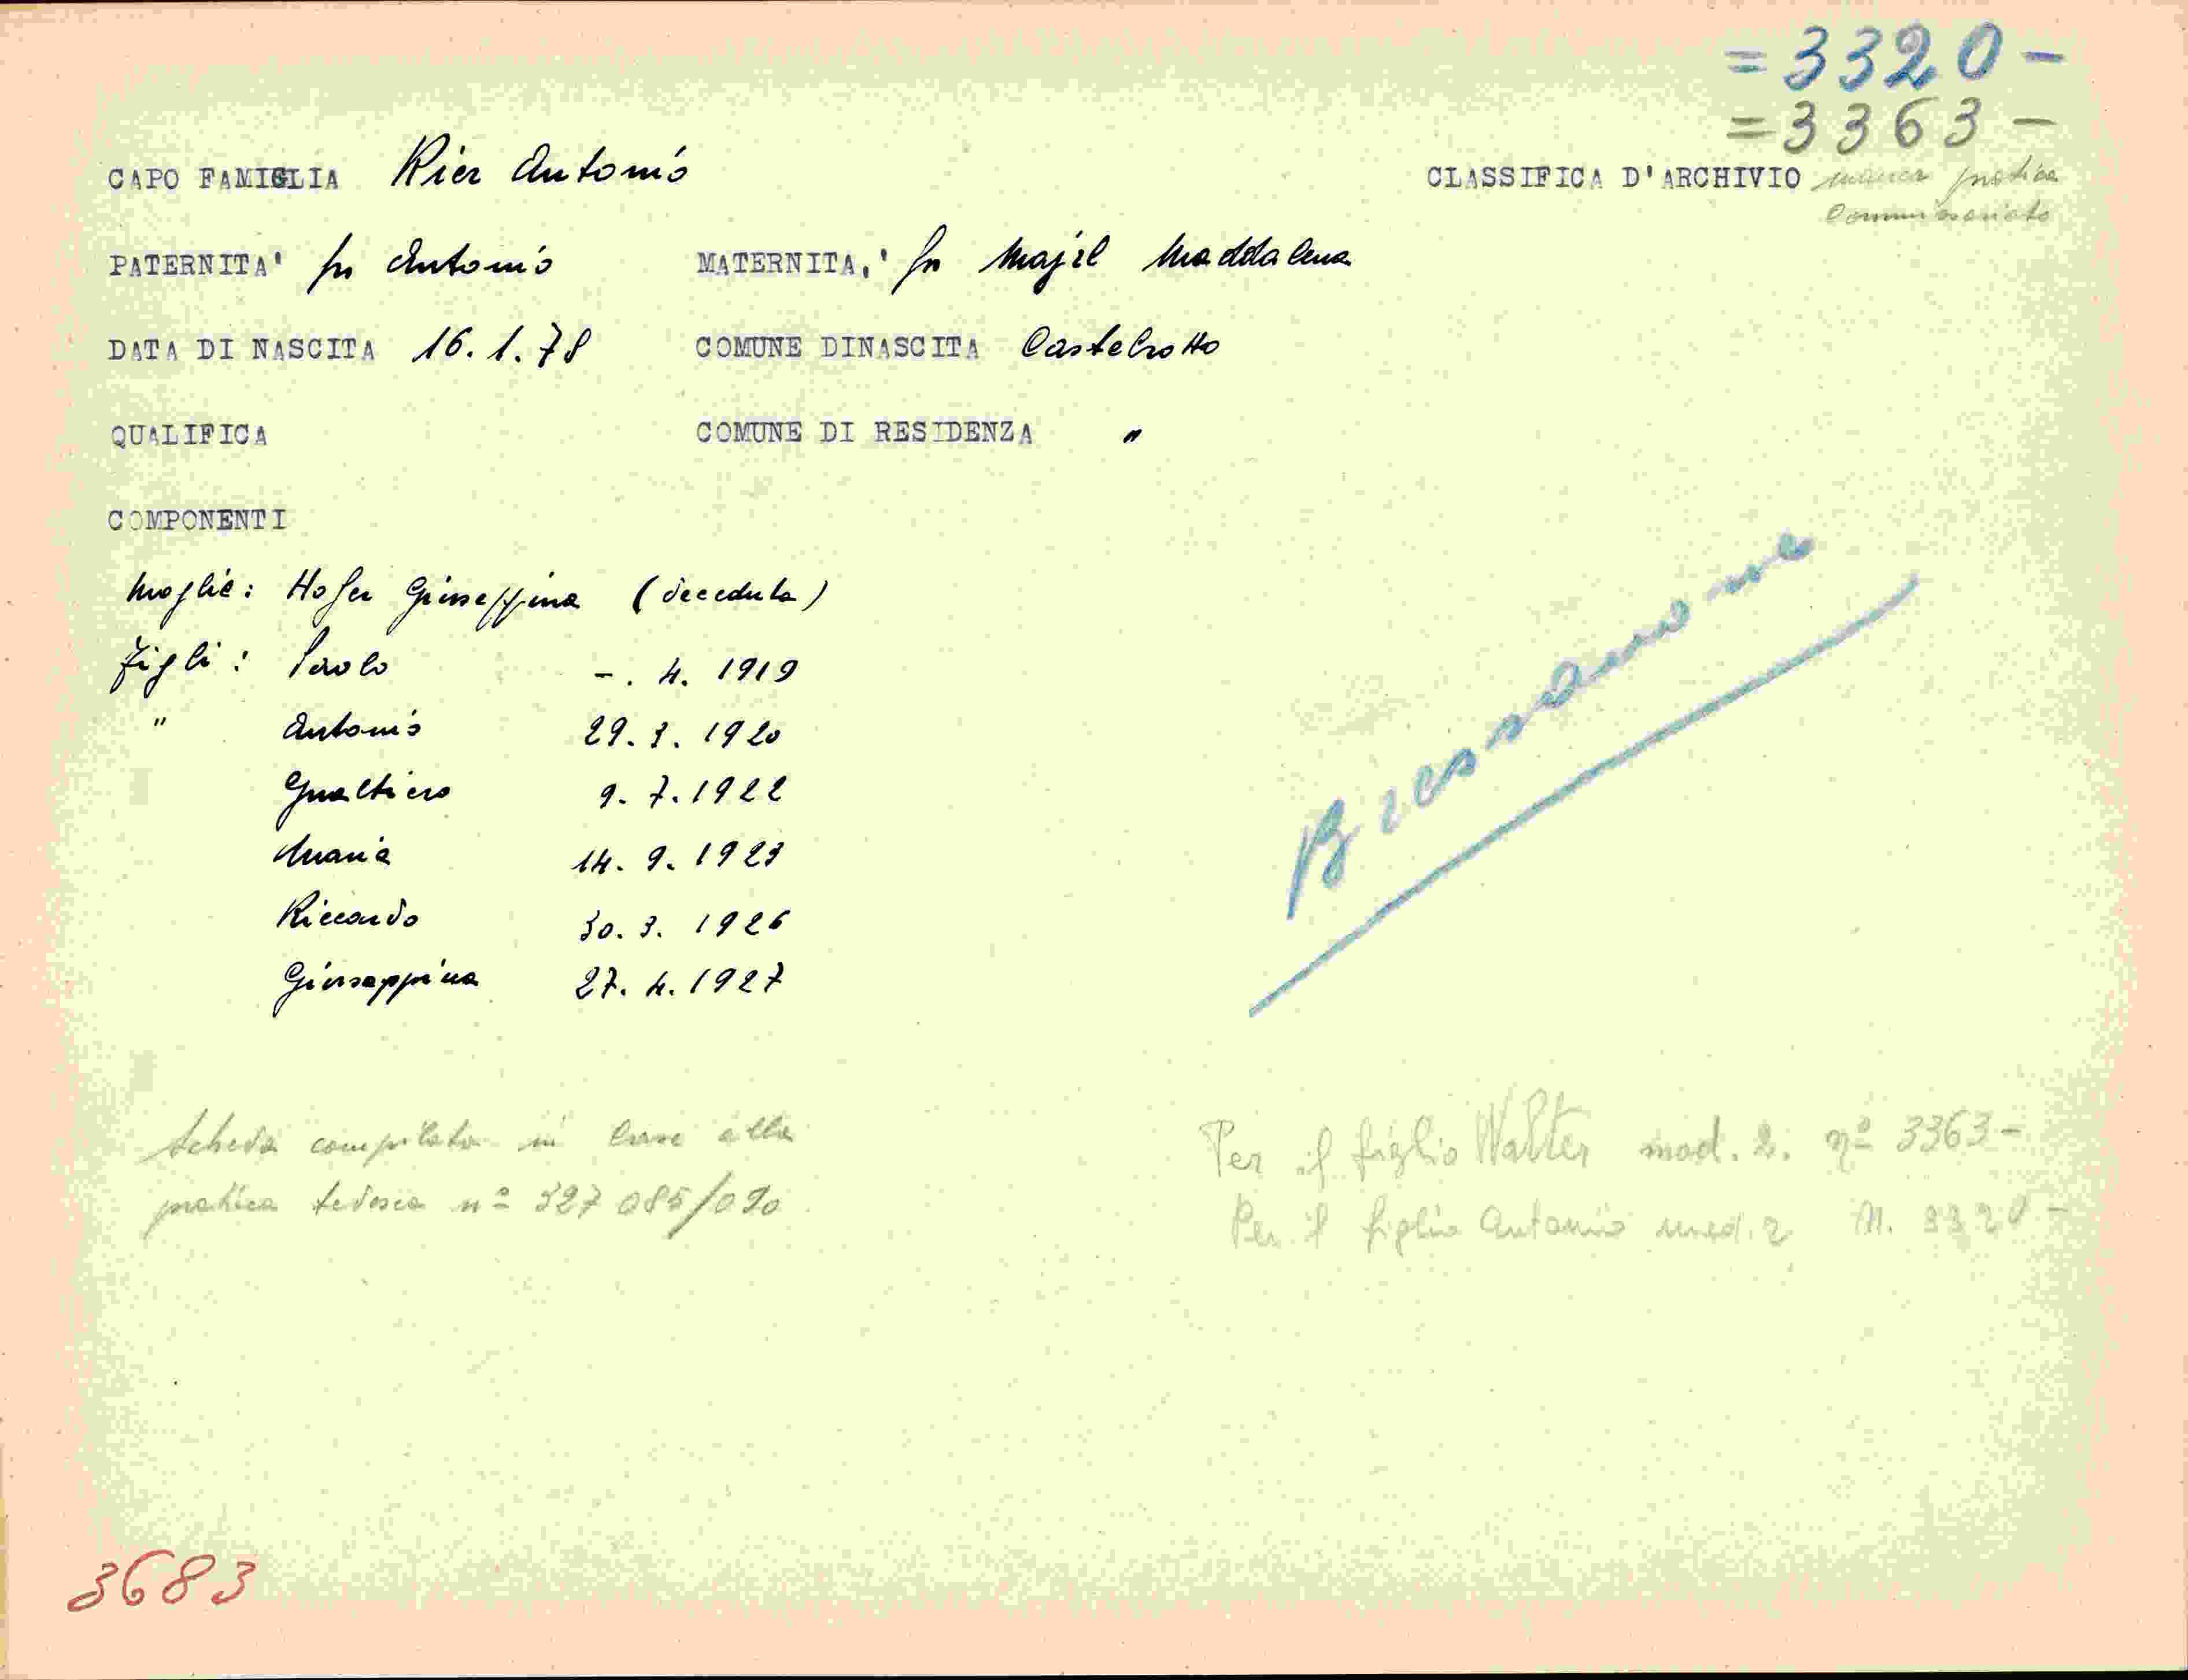 =3320-
=3363-
CAPO FAMIGLIA Rier Antonio CLASSIFICA D'ARCHIVIO manca pratica
Commissariato
PATERNITA' fu Antonio MATERNITA,' fu Majel Maddalena
DATA DI NASCITA 16.1.78 COMUNE DINASCITA Castelrotto
QUALIFICA COMUNE DI RESIDENZA "
COMPONENTI
Moglie: Hofer Giuseppina (deceduta)
Figli: Paolo -. 4. 1919
" Antonio 29. 3. 1920
Gualtiero 9. 7. 1922
Maria 14. 9. 1923
Riccardo 30. 3. 1926
Giuseppina 27. 4. 1927
Bressanone
Scheda compilata in base alla
pratica tedesca nº 327085/090
Per il figlio Walter mod. 2. nº 3363-
Per il figlio Antonio mod. 2 N. 3320-
3683